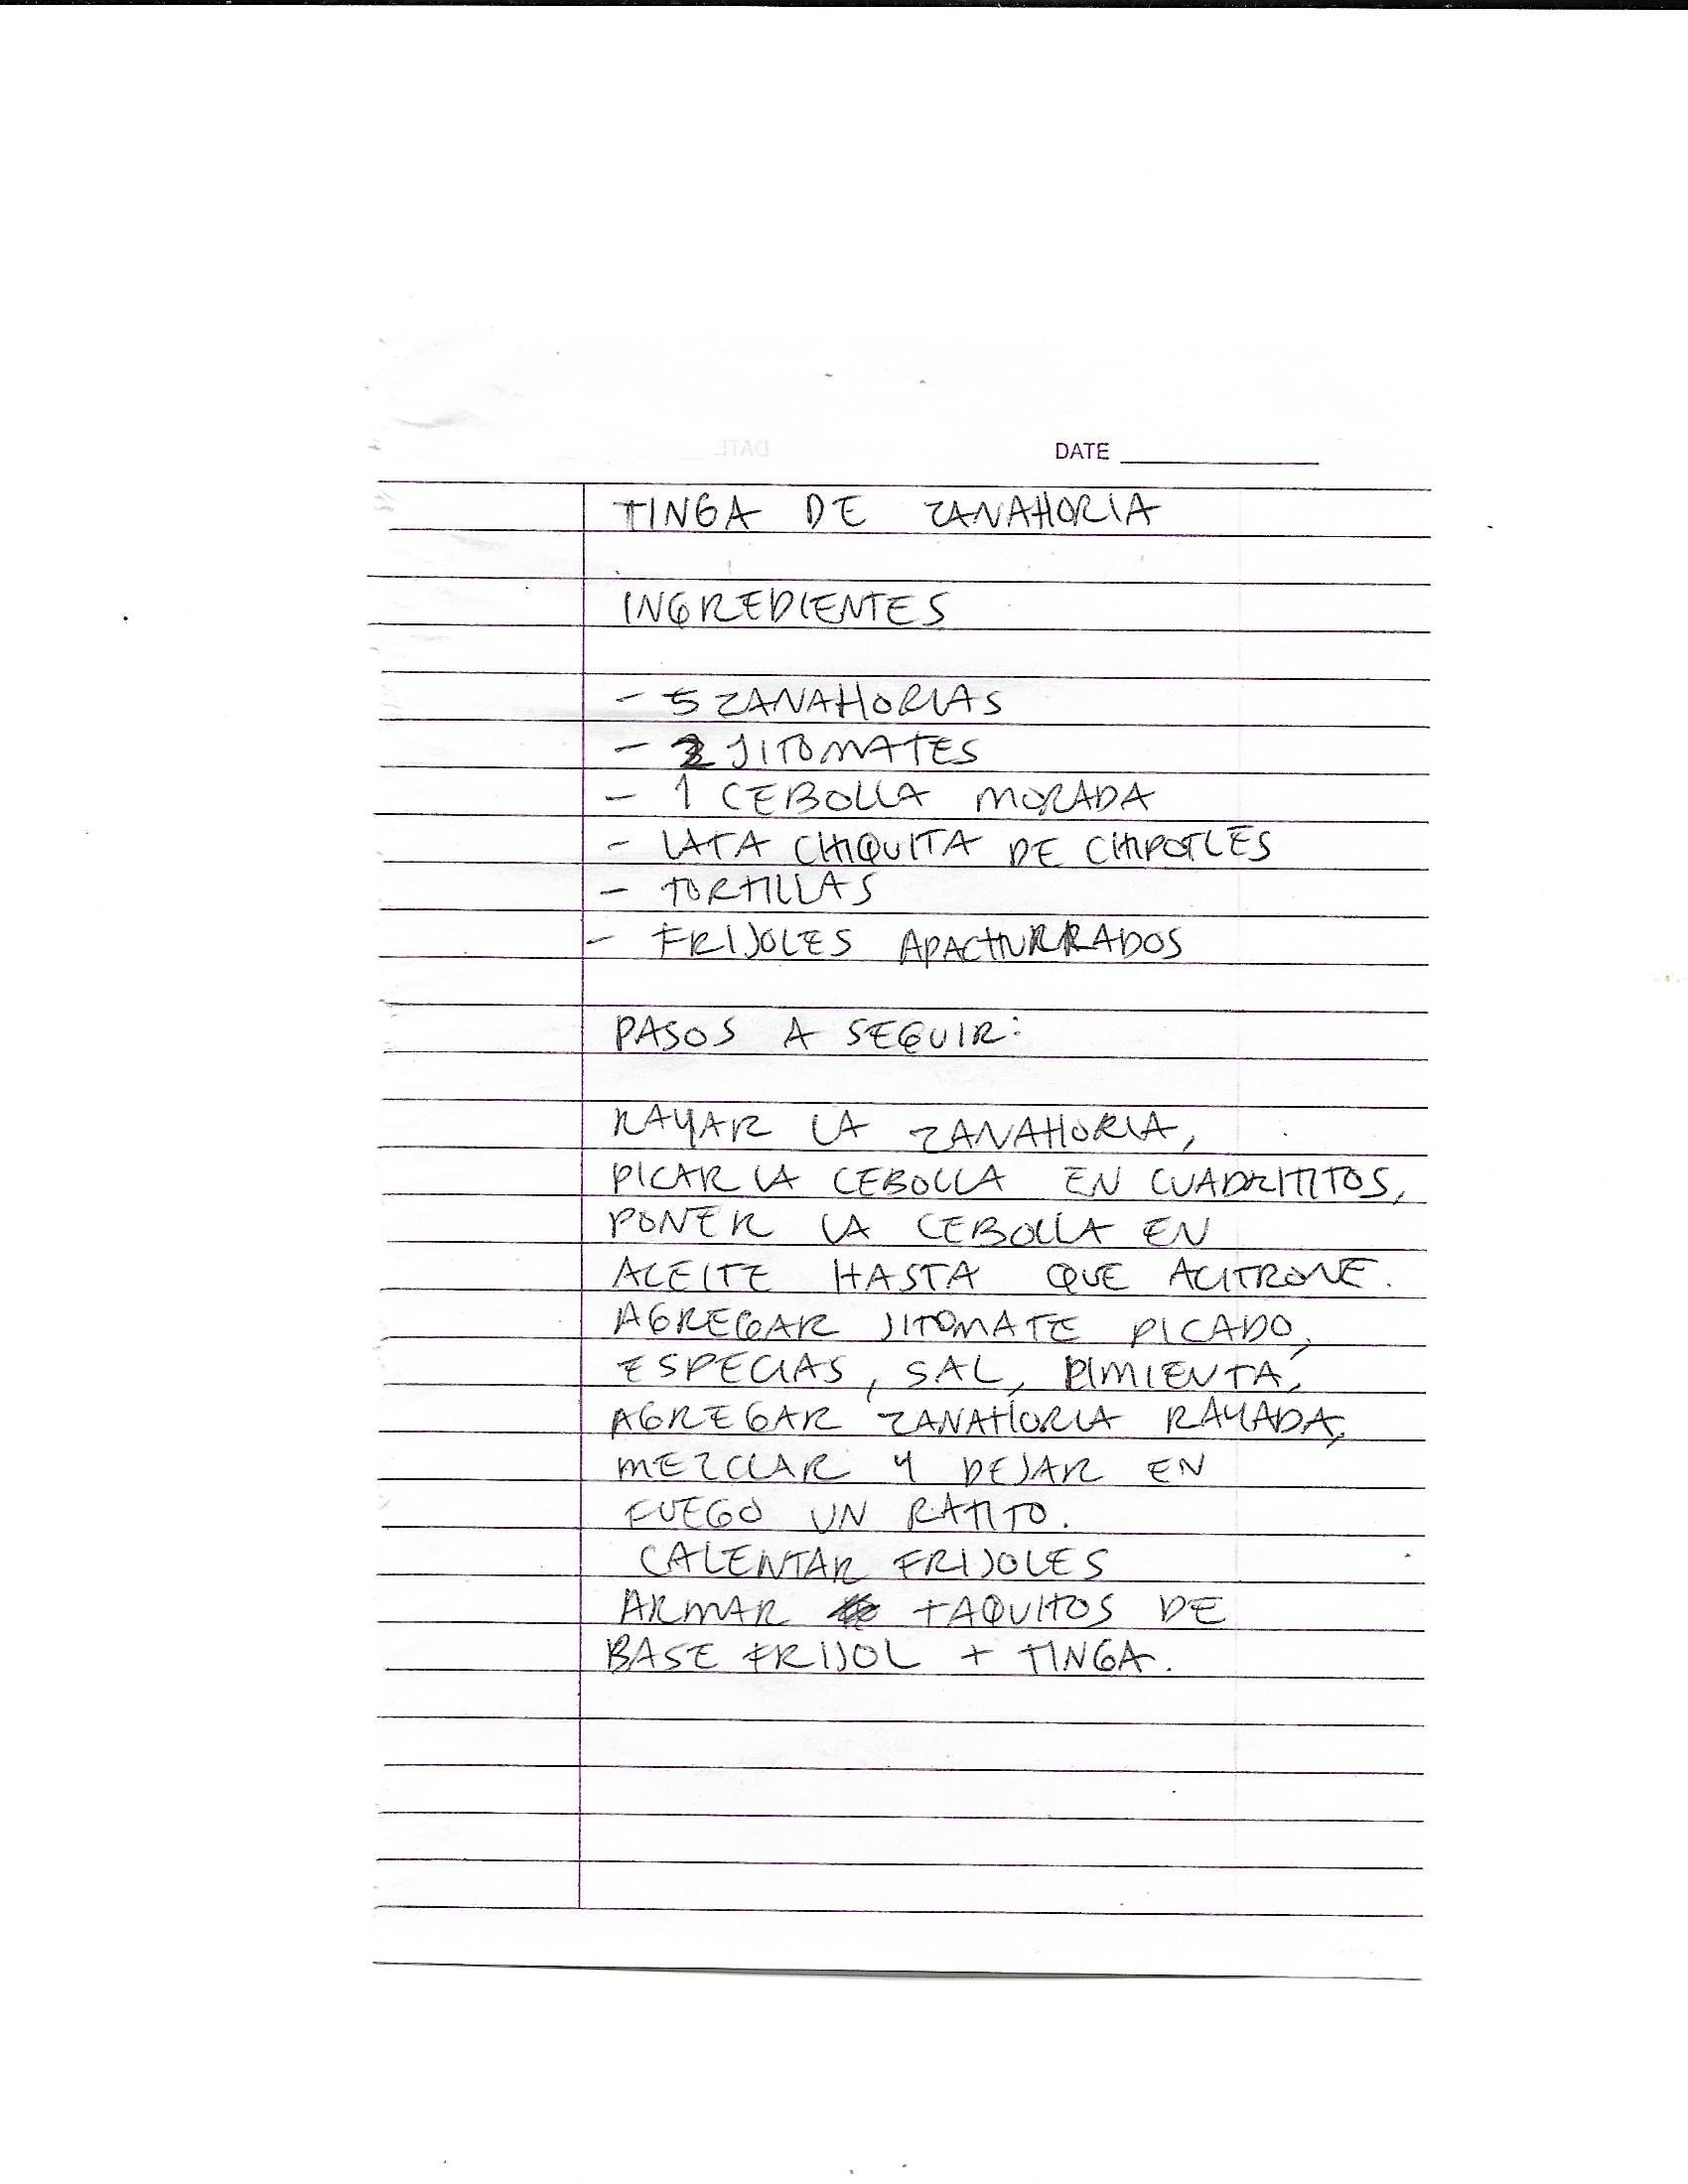 DATE
TINGA DE ZANAHORIA
INGREDIENTES
- 5 ZANAHORIAS
- 2 JITOMATES
- 1 CEBOLLA MORADA
- LATA CHIQUITA DE CHIPOTLES
- TORTILLAS
- FRIJOLES APACHURRADOS
PASOS A SEGUIR:
RAYAR LA ZANAHORIA,
PICAR LA CEBOLLA EN CUADRITITOS,
PONER LA CEBOLLA EN
ACEITE HASTA QUE ACITRONE.
AGREGAR JITOMATE PICADO,
ESPECIAS, SAL, PIMIENTA,
AGREGAR ZANAHORIA RAYADA,
MEZCLAR Y DEJAR EN
FUEGO UN RATITO.
CALENTAR FRIJOLES
ARMAR TAQUITOS DE
BASE FRIJOL + TINGA.